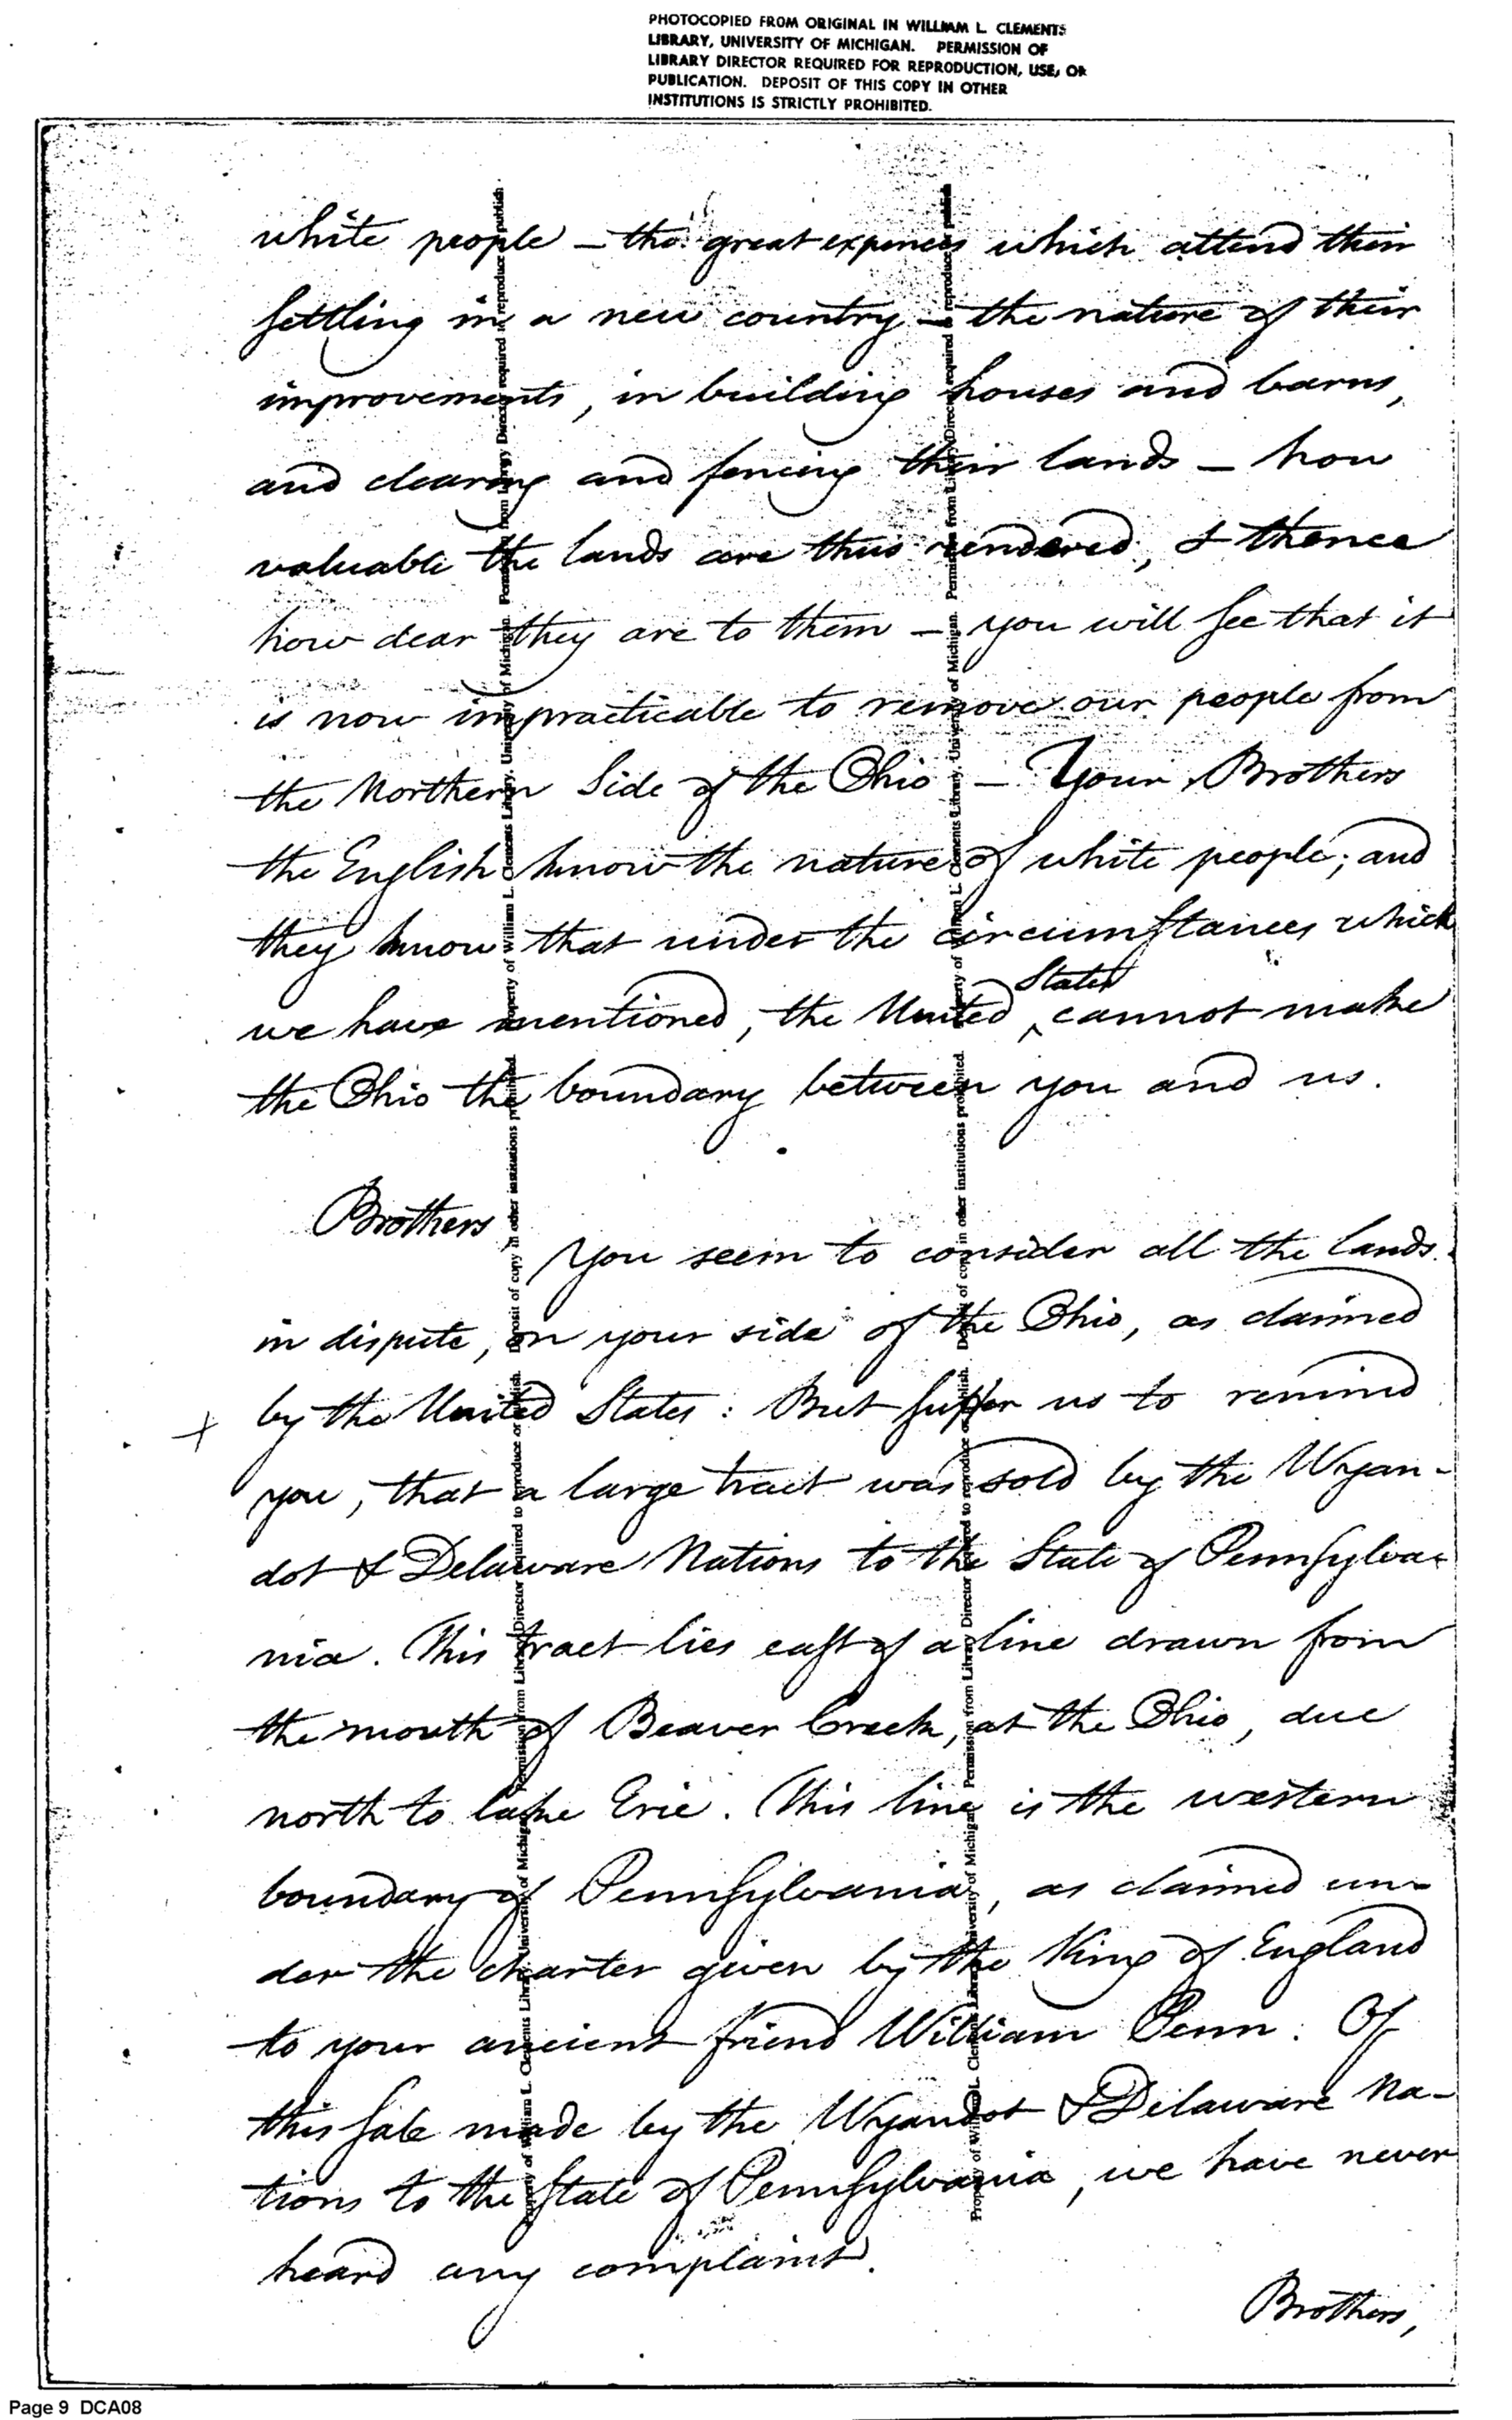 PHOTOCOPIED FROM ORIGINAL IN WILLIAM L. CLEMENTS
LIBRARY, UNIVERSITY OF MICHIGAN. PERMISSION OF
LIBRARY DIRECTOR REQUIRED FOR REPRODUCTION, USE, OR
PUBLICATION. DEPOSIT OF THIS COPY IN OTHER
INSTITUTIONS IS STRICTLY PROHIBITED.
white people – the great expences which attend their
settling in a new country – the nature of their
improvements, in building houses and barns,
and clearing and fencing their lands – how
valuable the lands are thus rendered, & thence
how dear they are to them – you will see that it
is now impracticable to remove our people from
the Northern Side of the Ohio – Your Brothers
the English know the nature of white people; and
they know that under the circumstances which
we have mentioned, the United States cannot make
the Ohio the boundary between you and us.
Brothers,
You seem to consider all the lands
in dispute, on your side of the Ohio, as claimed
+ by the United States: But suffer us to remind
you, that a large tract was sold by the Wyan-
dot & Delaware Nations to the State of Pennsylva-
nia. This tract lies east of a line drawn from
the mouth of Beaver Creek, at the Ohio, due
north to lake Erie. This line is the western
boundary of Pennsylvania, as claimed un-
der the charter given by the King of England
to your ancient friend William Penn. Of
this sale made by the Wyandot & Delaware Na-
tions to the State of Pennsylvania, we have never
heard any complaint.
Brothers,
Property of William L. Clements Library, University of Michigan. Permission from Library Director required to reproduce or publish. Deposit of copy in other institutions prohibited. Property of William L. Clements Library, University of Michigan. Permission from Library Director required to reproduce or publish.
Property of William L. Clements Library, University of Michigan. Permission from Library Director required to reproduce or publish. Deposit of copy in other institutions prohibited. Property of William L. Clements Library, University of Michigan. Permission from Library Director required to reproduce or publish.
Page 9 DCA08